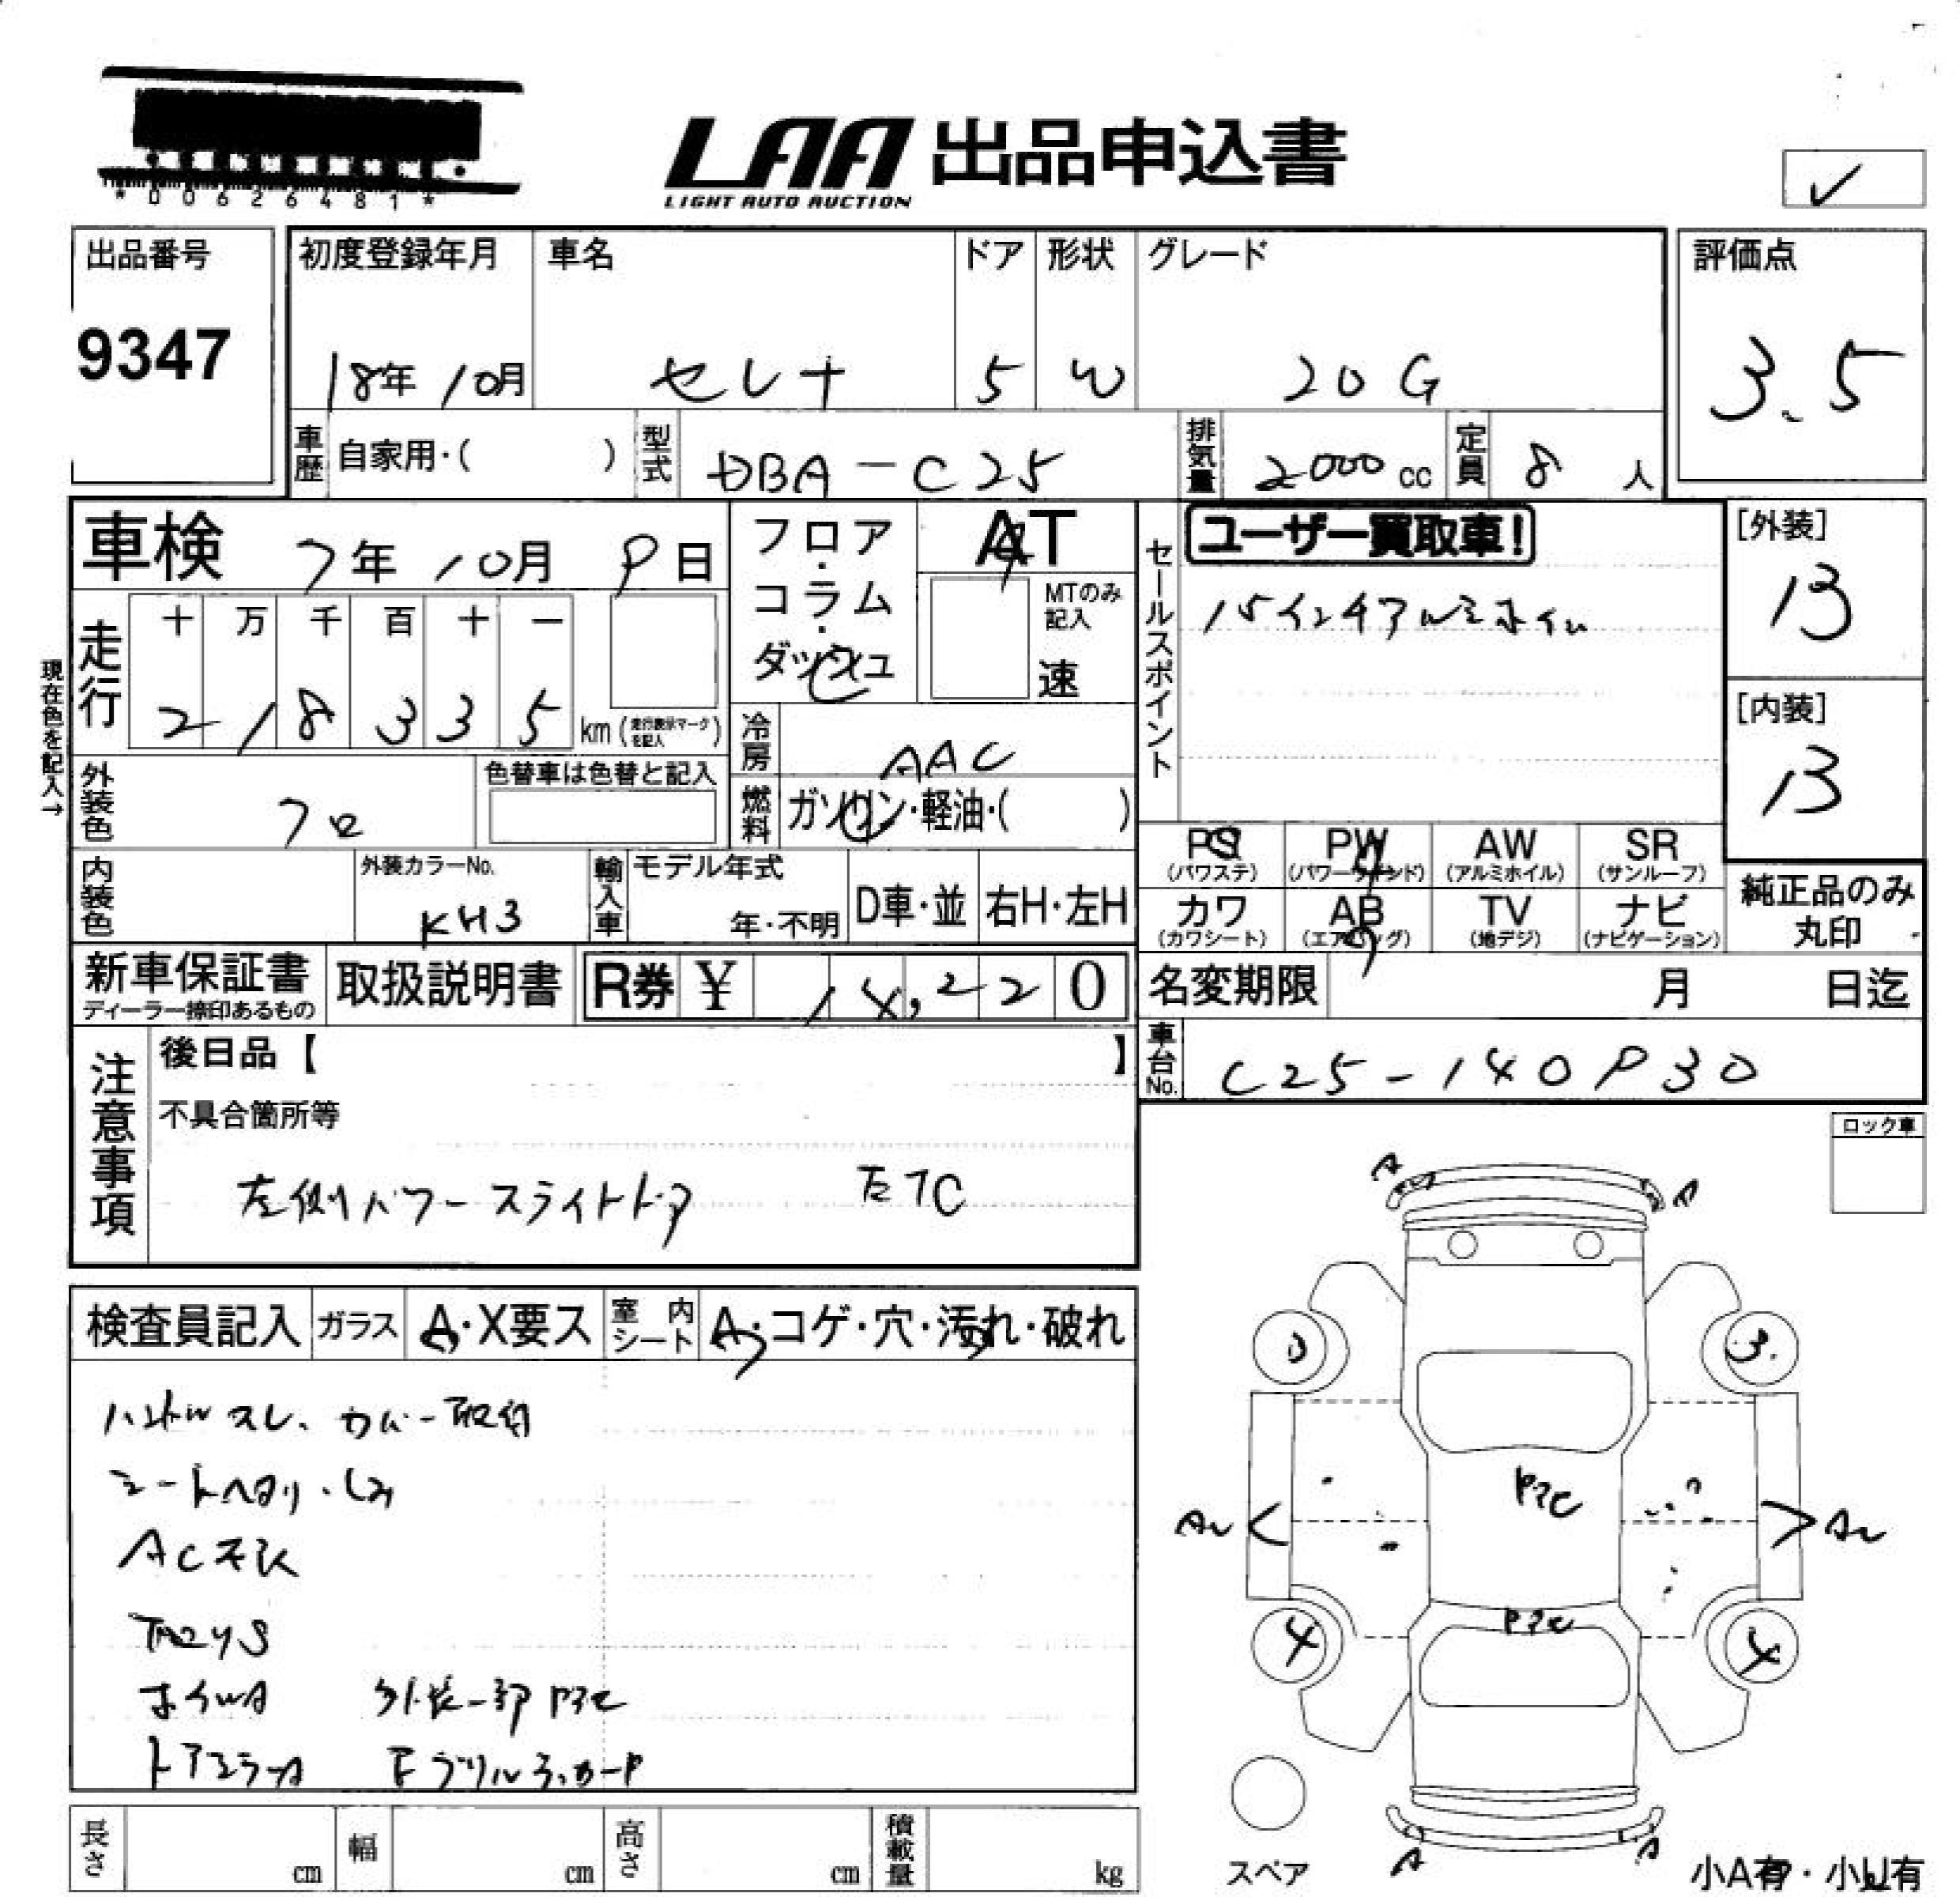 *00626481*
LAA 出品申込書
LIGHT AUTO AUCTION
✓
出品番号 初度登録年月 車名 ドア 形状 グレード 評価点
9347 18年 10月 セレナ 5 W 20G 3.5
車歴 自家用・( ) 型式 DBA-C25 排気量 2000cc 定員 8人
車検 7年 10月 9日 フロア・コラム・ダッシュ AT
MTのみ記入 速
セールスポイント ユーザー買取車!
15インチアルミホイル
[外装] B
[内装] B
現在色を記入→
走行 十 万 千 百 十 一
2 1 8 3 3 5 km (走行表示マークを記入)
冷房 AAC
外装色 クロ 色替車は色替と記入
燃料 ガソリン・軽油・( )
PS (パワステ) PW (パワーウインド) AW (アルミホイル) SR (サンルーフ)
カワ (カワシート) AB (エアバッグ) TV (地デジ) ナビ (ナビゲーション)
純正品のみ丸印
内装色 外装カラーNo. KH3 輸入車 モデル年式 年・不明 D車・並 右H・左H
新車保証書 ディーラー捺印あるもの 取扱説明書 R券 ¥ 14,220
名変期限 月 日迄
車台No. C25-140930
注意事項 後日品【 】
不具合箇所等
左側パワースライドドア ETC
ロック車
検査員記入 ガラス A・X要ス 室内シート A・コゲ・穴・汚れ・破れ
ハンドルスレ、カバー取付
シートヘタリ・しみ
ホイルA 外装一部
A A
3
AU AU
4 4
A A
長さ cm 幅 cm 高さ cm 積載量 kg
スペア
小A有・小U有